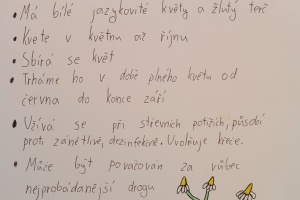 • Má bílé jazykovité květy a žlutý terč
• Kvete v květnu až říjnu
• Sbírá se květ
• Trháme ho v době plného květu od
června do konce září
• Užívá se při střevních potížích, působí
proti zánětlivě, dezinfekčně. Uvolňuje křeče.
• Může být považován za vůbec
nejprobádanější drogu